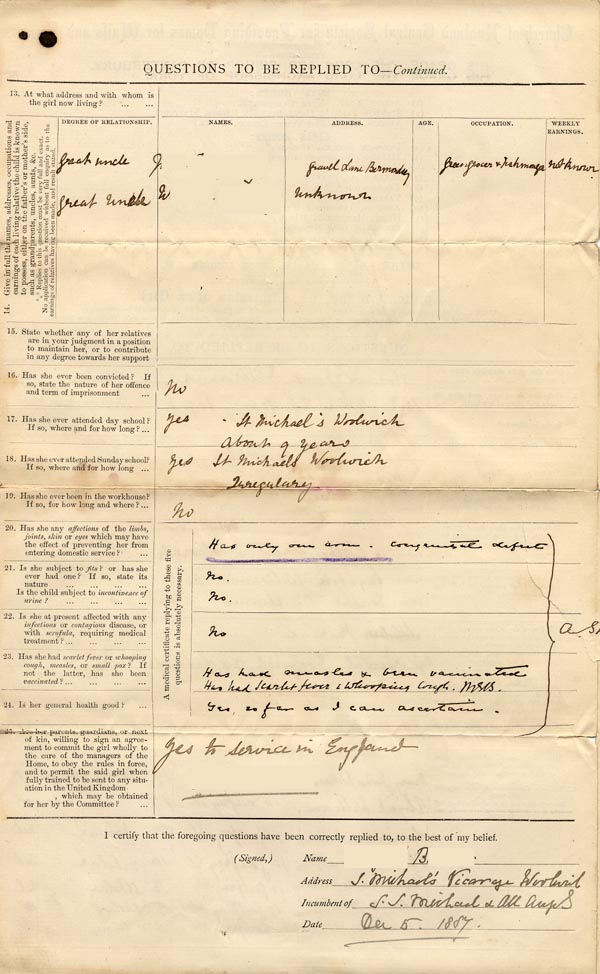 QUESTIONS TO BE REPLIED TO—Continued.
13. At what address and with whom is
the girl now living? ... ...
14. Give in full the names, addresses, occupations and
earnings of each living relative the child is known
to possess, either on the father's or mother's side,
such as grandparents, uncles, aunts, &c.
*** Replies to this question must be very full and exact.
No application can be received without full enquiry as to the
earnings of relatives having been made, and result stated.
DEGREE OF RELATIONSHIP. NAMES. ADDRESS. AGE. OCCUPATION. WEEKLY EARNINGS.
Great uncle J. Gravel Lane Bermondsey not known
Great Uncle W unknown
15. State whether any of her relatives
are in your judgment in a position
to maintain her, or to contribute
in any degree towards her support
16. Has she ever been convicted? If
so, state the nature of her offence
and term of imprisonment ...
No
17. Has she ever attended day school?
If so, where and for how long? ...
yes St Michael's Woolwich
About 9 years
18. Has she ever attended Sunday school?
If so, where and for how long ...
Yes St Michaels Woolwich
Irregulary
19. Has she ever been in the workhouse?
If so, for how long and where? ...
No
A medical certificate replying to these five
questions is absolutely necessary.
20. Has she any affections of the limbs,
joints, skin or eyes which may have
the effect of preventing her from
entering domestic service? ...
Has only one arm. congenital defect
21. Is she subject to fits? or has she
ever had one? If so, state its
nature ... ... ... ...
Is the child subject to incontinence of
urine? ... ... ... ...
No.
No.
22. Is she at present affected with any
infectious or contagious disease, or
with scrofula, requiring medical
treatment? ... ... ... ...
No
23. Has she had scarlet fever or whooping
cough, measles, or small pox? If
not the latter, has she been
vaccinated? ... ... ... ...
Has had measles & been vaccinated
Has had Scarlet fever & Whooping Cough.
24. Is her general health good? ...
Yes, so far as I can ascertain.
25. Are her parents, guardians, or next
of kin, willing to sign an agree-
ment to commit the girl wholly to
the care of the managers of the
Home, to obey the rules in force,
and to permit the said girl when
fully trained to be sent to any situ-
ation in the United Kingdom
, which may be obtained
for her by the Committee? ...
Yes to service in England
I certify that the foregoing questions have been correctly replied to, to the best of my belief.
(Signed,) Name B.
Address S. Michael's Vicarage Woolwich
Incumbent of S.S. Michael & All Angels
Date Dec 5. 1887.